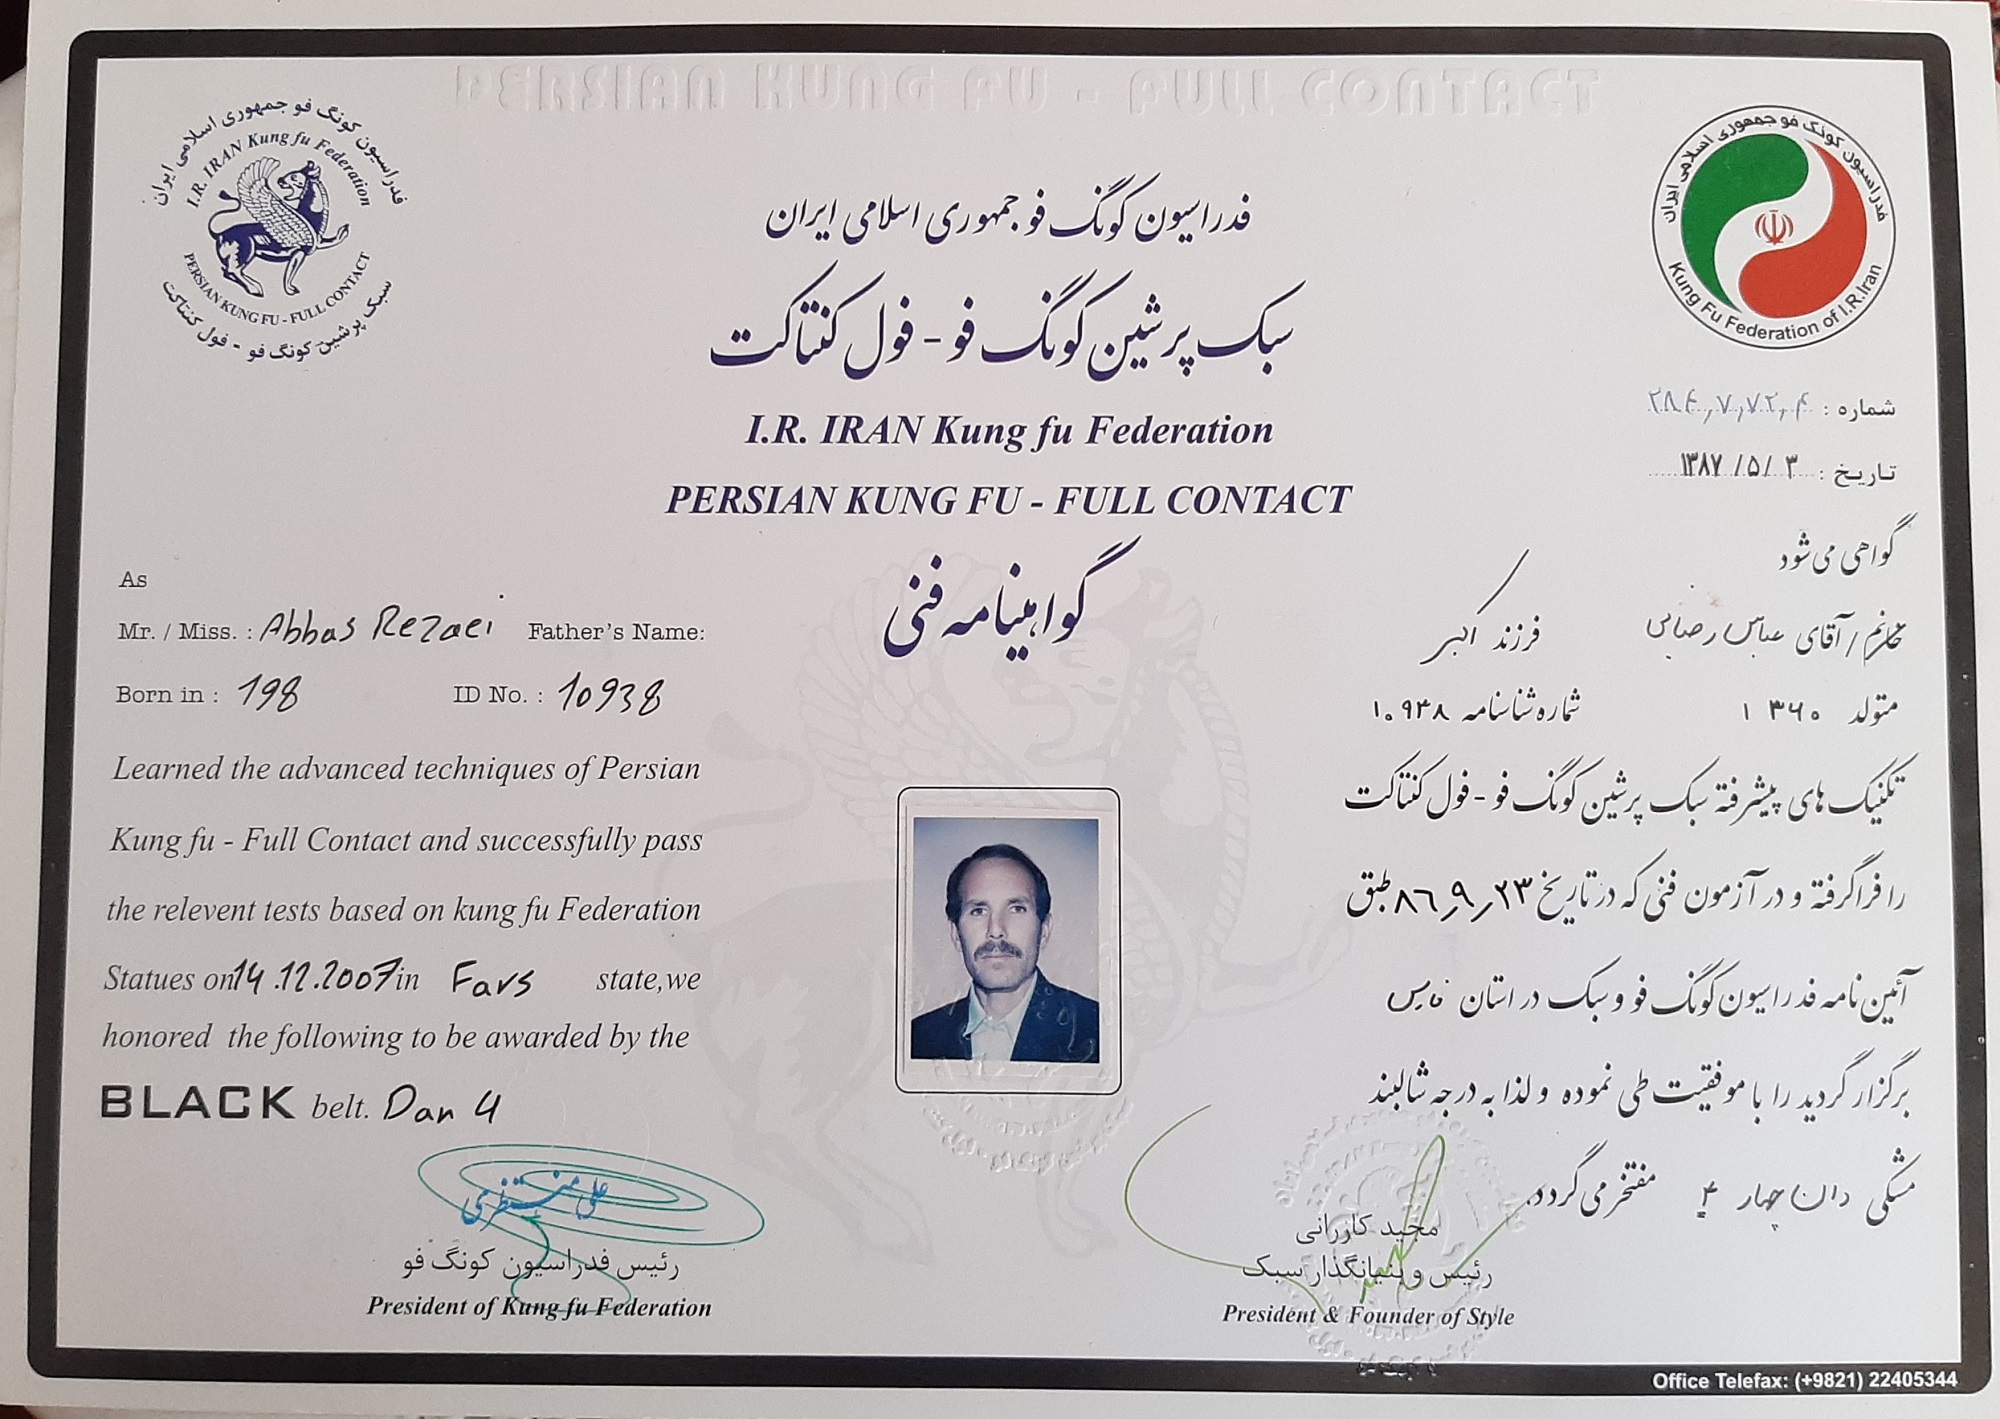 PERSIAN KUNG FU - FULL CONTACT
فدراسیون کونگ فو جمهوری اسلامی ایران
I.R. IRAN Kung fu Federation
PERSIAN KUNG FU - FULL CONTACT
سبک پرشین کونگ فو - فول کنتاکت
فدراسیون کونگ فو جمهوری اسلامی ایران
Kung Fu Federation of I.R.Iran
فدراسیون کونگ فو جمهوری اسلامی ایران
سبک پرشین کونگ فو - فول کنتاکت
I.R. IRAN Kung fu Federation
PERSIAN KUNG FU - FULL CONTACT
گواهینامه فنی
شماره :
تاریخ : ۱۳۸۷/۵/۳
گواهی می شود
خانم / آقای عباس رضایی فرزند اکبر
متولد ۱۳۶۰ شماره شناسنامه ۱۰۹۳۸
تکنیک های پیشرفته سبک پرشین کونگ فو - فول کنتاکت
را فراگرفته و در آزمون فنی که در تاریخ ۸۶,۹,۲۳ طبق
آئین نامه فدراسیون کونگ فو و سبک در استان فارس
برگزار گردید را با موفقیت طی نموده و لذا به درجه شالبند
مشکی دان چهار ۴ مفتخر می گردد.
As
Mr. / Miss. : Abbas Rezaei Father's Name:
Born in : 198 ID No. : 10938
Learned the advanced techniques of Persian
Kung fu - Full Contact and successfully pass
the relevent tests based on kung fu Federation
Statues on 14.12.2007 in Fars state, we
honored the following to be awarded by the
BLACK belt. Dan 4
علی منتظری
رئیس فدراسیون کونگ فو
President of Kung fu Federation
مجید کاررانی
رئیس و بنیانگذار سبک
President & Founder of Style
Office Telefax: (+9821) 22405344